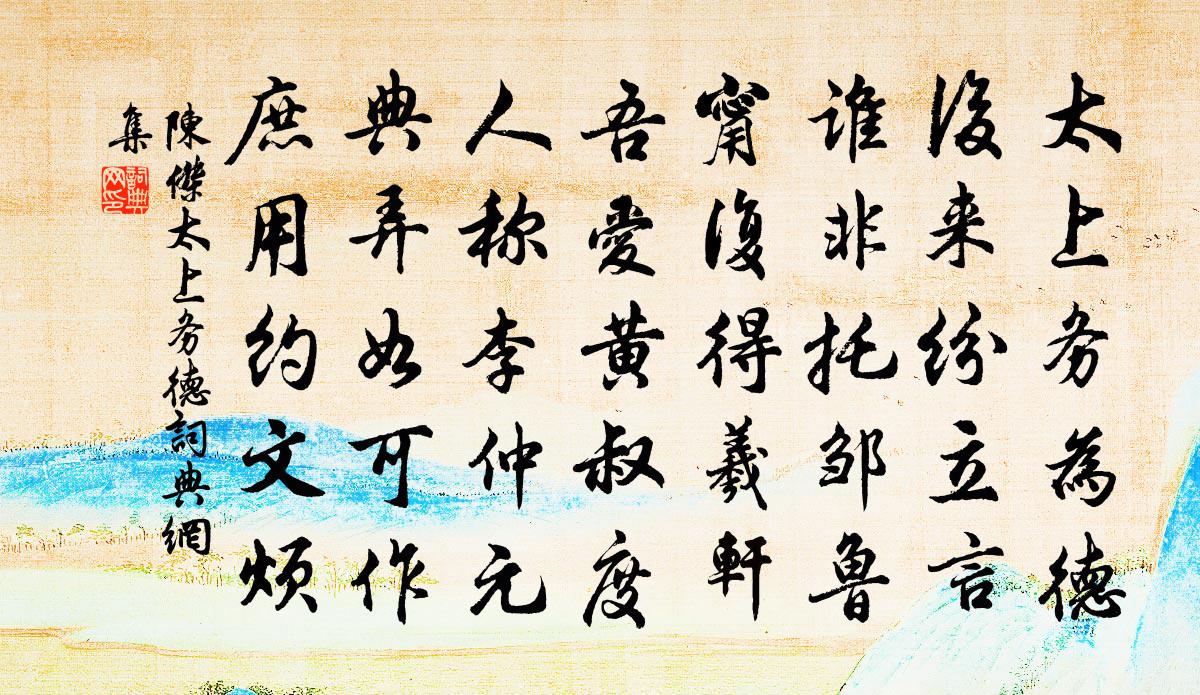 太上务為德
後来纷立言
谁非托邹鲁
甯復得羲軒
吾愛黄叔度
人称李仲元
典弄如可作
庶用约文烦
陳傑太上务德詞典網
集
詞典
网印